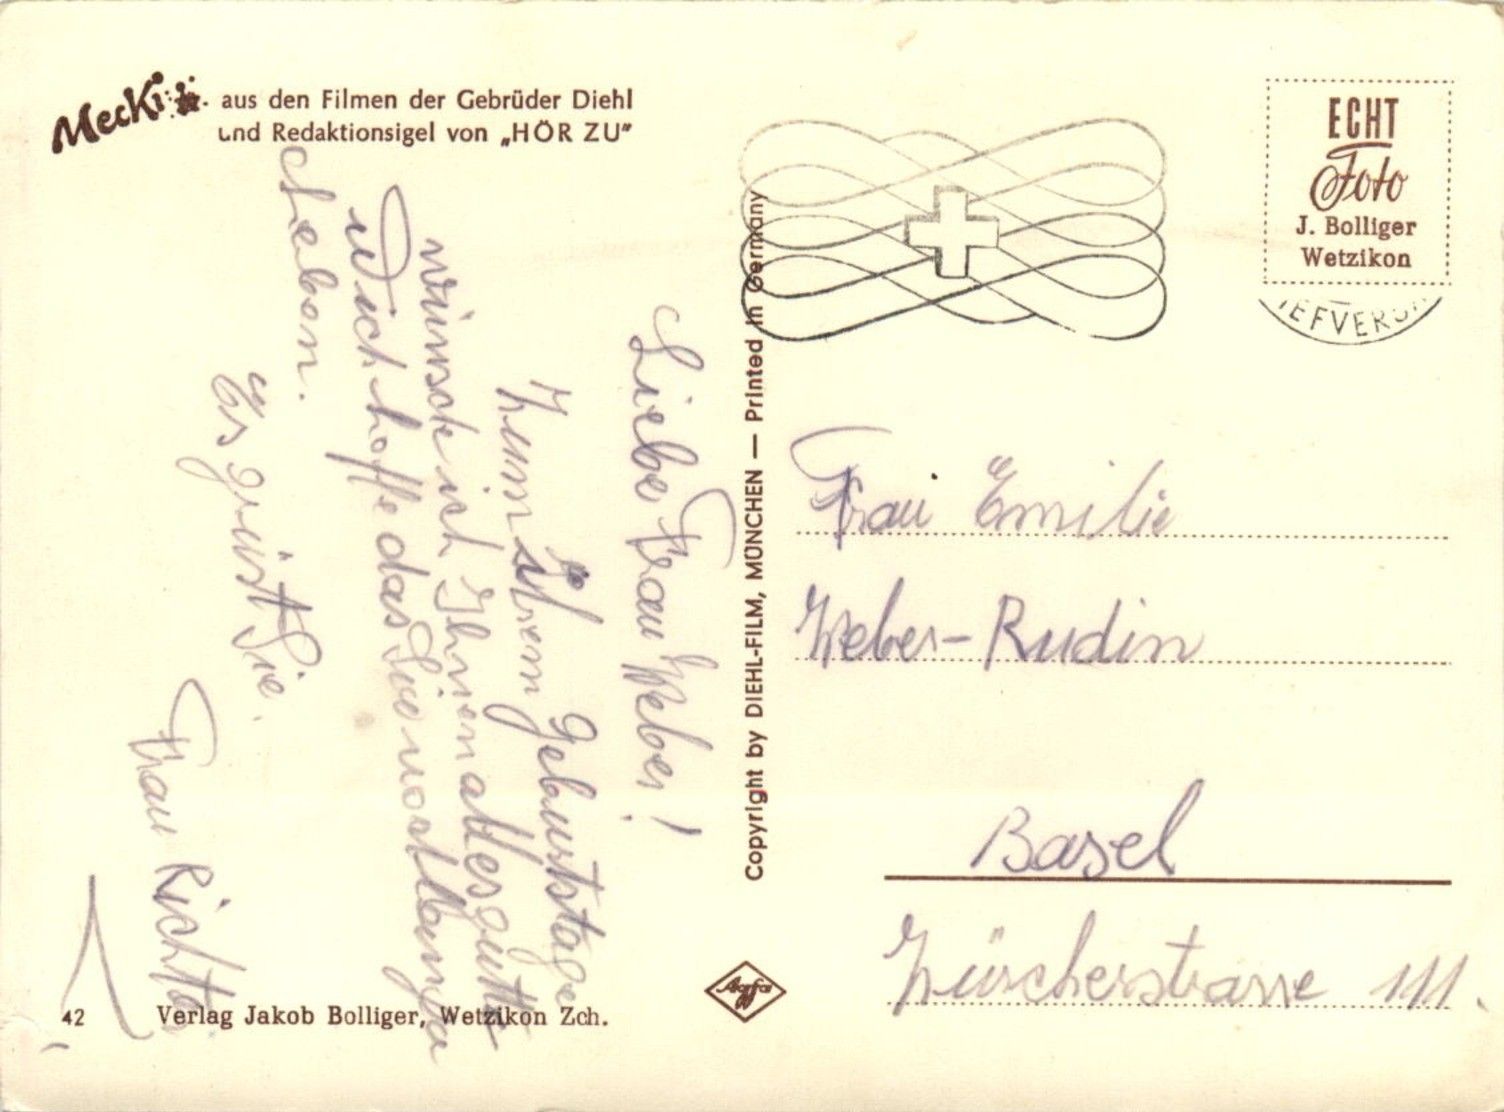 Mecki
aus den Filmen der Gebrüder Diehl
und Redaktionsigel von „HÖR ZU"
ECHT
Foto
J. Bolliger
Wetzikon
IEFVER
Liebe Frau Weber!
Zum Ihrem Geburtstage
wünsche ich Ihnen alles gutte
Und hoffe das Sie noch lange
Leben.
Es grüst Sie.
Frau Richter
Copyright by DIEHL-FILM, MÜNCHEN — Printed in Germany
Frau Emilie
Weber-Rudin
Basel
Zürcherstrasse 111.
Agfa
42
Verlag Jakob Bolliger, Wetzikon Zch.